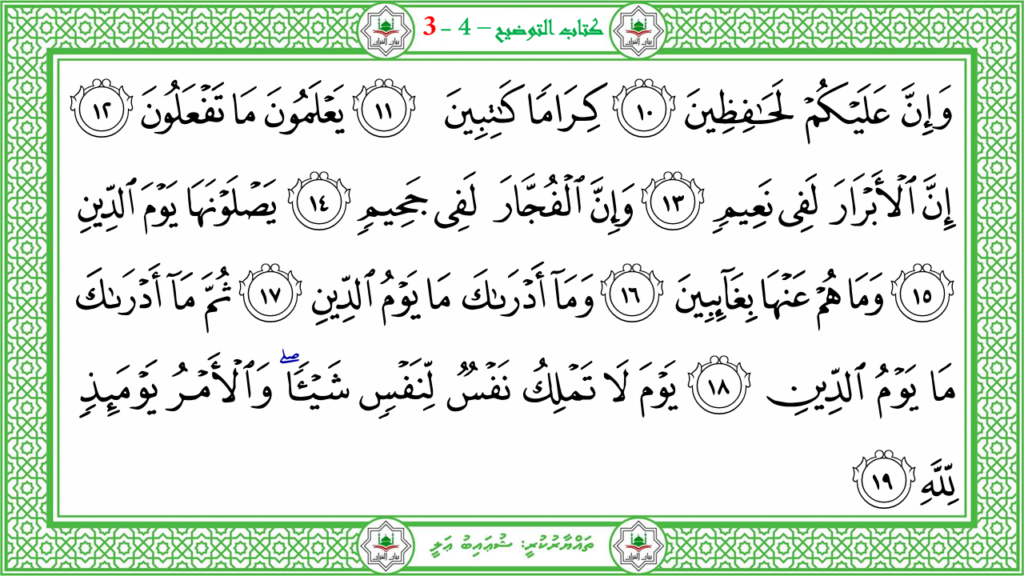 كتاب التوضيح – 4 - 3
وَإِنَّ عَلَيۡكُمۡ لَحَٰفِظِينَ ١٠ كِرَامٗا كَٰتِبِينَ ١١ يَعۡلَمُونَ مَا تَفۡعَلُونَ ١٢
إِنَّ ٱلۡأَبۡرَارَ لَفِي نَعِيمٖ ١٣ وَإِنَّ ٱلۡفُجَّارَ لَفِي جَحِيمٖ ١٤ يَصۡلَوۡنَهَا يَوۡمَ ٱلدِّينِ
١٥ وَمَا هُمۡ عَنۡهَا بِغَآئِبِينَ ١٦ وَمَآ أَدۡرَىٰكَ مَا يَوۡمُ ٱلدِّينِ ١٧ ثُمَّ مَآ أَدۡرَىٰكَ
مَا يَوۡمُ ٱلدِّينِ ١٨ يَوۡمَ لَا تَمۡلِكُ نَفۡسٞ لِّنَفۡسٖ شَيۡـٔٗاۖ وَٱلۡأَمۡرُ يَوۡمَئِذٖ
لِّلَّهِ ١٩
ތައްޔާރުކުރީ: ޝުޢައިބު ޢަލީ